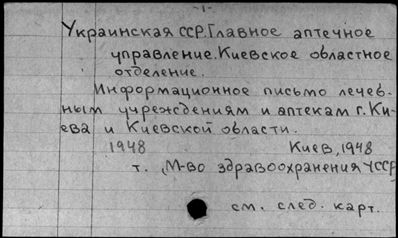 -1-
Украинская ССР. Главное аптечное
управление. Киевское областное
отделение.
Информационное письмо лечеб-
ным учреждениям и аптекам г. Ки-
ева и Киевской области.
1948 Киев, 1948
т. М-во здравоохранения УССР
см. след. карт.